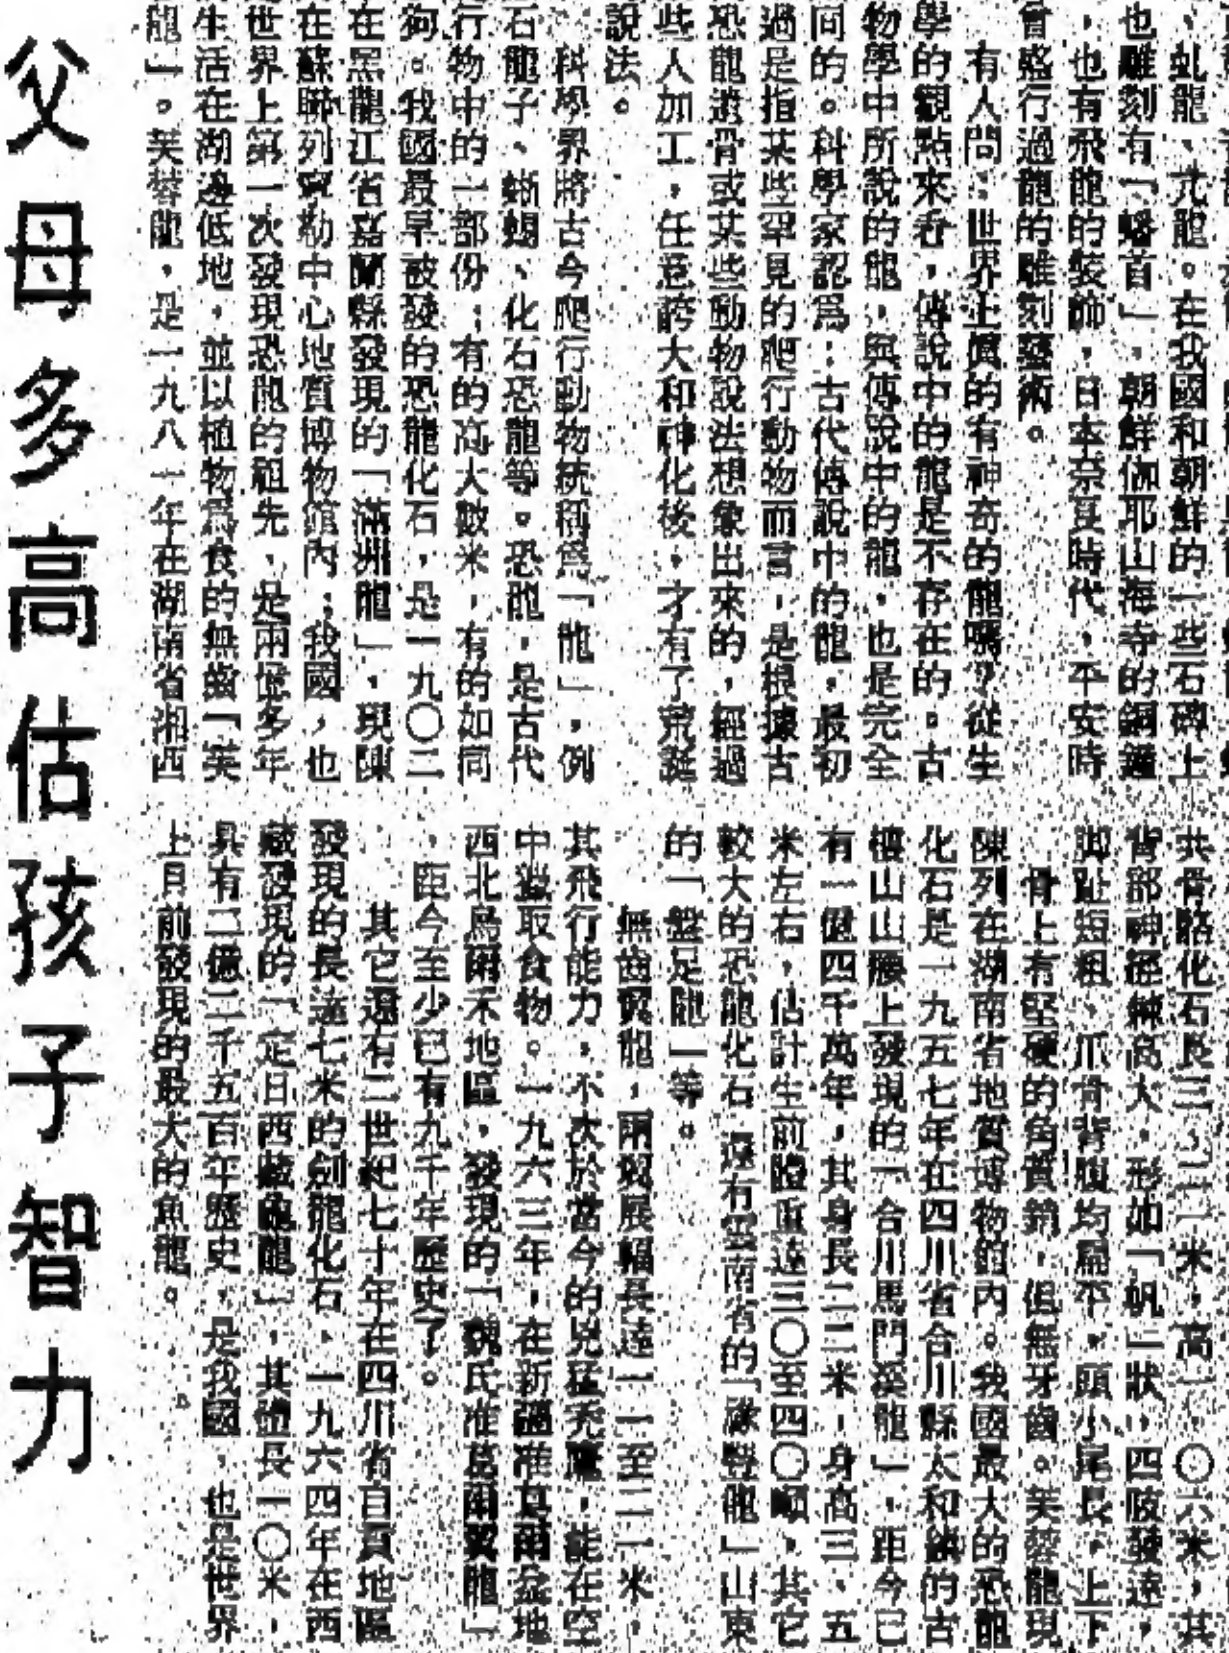 、虬龍、亢龍。在我國和朝鮮的一些石碑上
也雕刻有「蟠首」，朝鮮伽耶山海寺的銅鐘
，也有飛龍的裝飾，日本奈良時代，平安時
會盛行過龍的雕刻藝術。
有人問：世界上真的有神奇的龍嗎？從生
學的觀點來看，傳說中的龍是不存在的。古
物學中所說的龍，與傳說中的龍，也是完全
同的。科學家認爲：古代傳說中的龍，最初
過是指某些罕見的爬行動物而言，是根據古
恐龍遺骨或某些動物說法想象出來的，經過
些人加工，任意誇大和神化後，才有了荒誕
說法。
科學界將古今爬行動物統稱爲「龍」，例
石龍子、蜥蜴、化石恐龍等。恐龍，是古代
行物中的一部份；有的高大數米，有的如同
狗。我國最早被發的恐龍化石，是一九〇二
在黑龍江省嘉蘭縣發現的「滿洲龍」，現陳
在蘇聯列寧勒中心地質博物館內；我國，也
世界上第一次發現恐龍的祖先，是兩億多年
生活在湖邊低地，並以植物爲食的無齒「芙
龍」。芙蓉龍，是一九八一年在湖南省湘西
共骨骼化石長三．二米，高一．〇六米，其
背部神經棘高大，形如「帆」狀，四肢發達，
脚趾短粗，爪骨背腹均扁平，頭小尾長，上下
骨上有堅硬的角質鞘，但無牙齒。芙蓉龍現
陳列在湖南省地質博物館內。我國最大的恐龍
化石是一九五七年在四川省合川縣太和鎮的古
樓山山腰上發現的「合川馬門溪龍」，距今已
有一億四千萬年，其身長二二米，身高三．五
米左右，估計生前體重達三〇至四〇噸，其它
較大的恐龍化石，還有雲南省的「祿豐龍」山東
的「盤足龍」等。
無齒翼龍，兩翅展幅長達一一至二二米，
其飛行能力，不次於當今的兇猛禿鷹，能在空
中獵取食物。一九六三年，在新疆准葛爾盆地
西北烏爾禾地區，發現的「魏氏准葛爾翼龍」
，距今至少已有九千年歷史了。
其它還有二世紀七十年在四川省自貢地區
發現的長達七米的劍龍化石，一九六四年在西
藏發現的「定日西藏龜龍」，其體長一〇米，
具有二億二千五百年歷史，是我國，也是世界
上目前發現的最大的魚龍。
父母多高估孩子智力